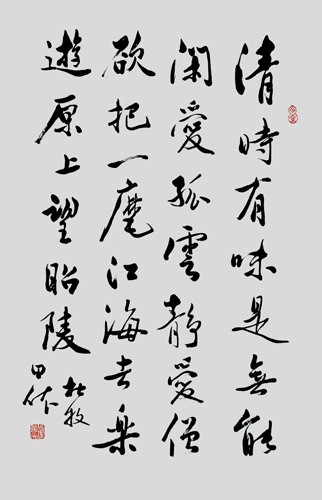 清時有味是無能
閑愛孤雲靜愛僧
欲把一麾江海去樂
遊原上望昭陵
杜牧